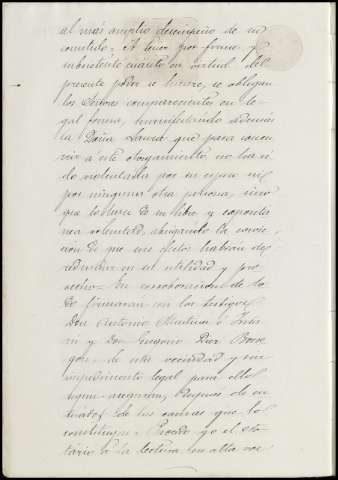 al más amplio desempeño de su
cometido. A tener por firme y
subsistente cuanto en virtud del
presente poder se hiciere, se obligan
los Señores comparecientes en le-
gal forma, manifestando además
la Doña Laura que para concu-
rrir á este otorgamiento, no ha si
do violentada por su esposo ni
por ninguna otra persona, sino
que lo hace de su libre y espontá
nea voluntad, abrigando la convic-
ción de que sus efectos habrán de
redundar en su utilidad y pro
vecho. En corroboración de to
do firmarán con los testigos
Don Antonio Martinez é
y Don Eugenio Diaz
de esta vecindad y sin
impedimento legal para ello
segun aseguran, después de en
terados de las causas que lo
constituyen. Procedo yo el No-
tario á la lectura en alta voz